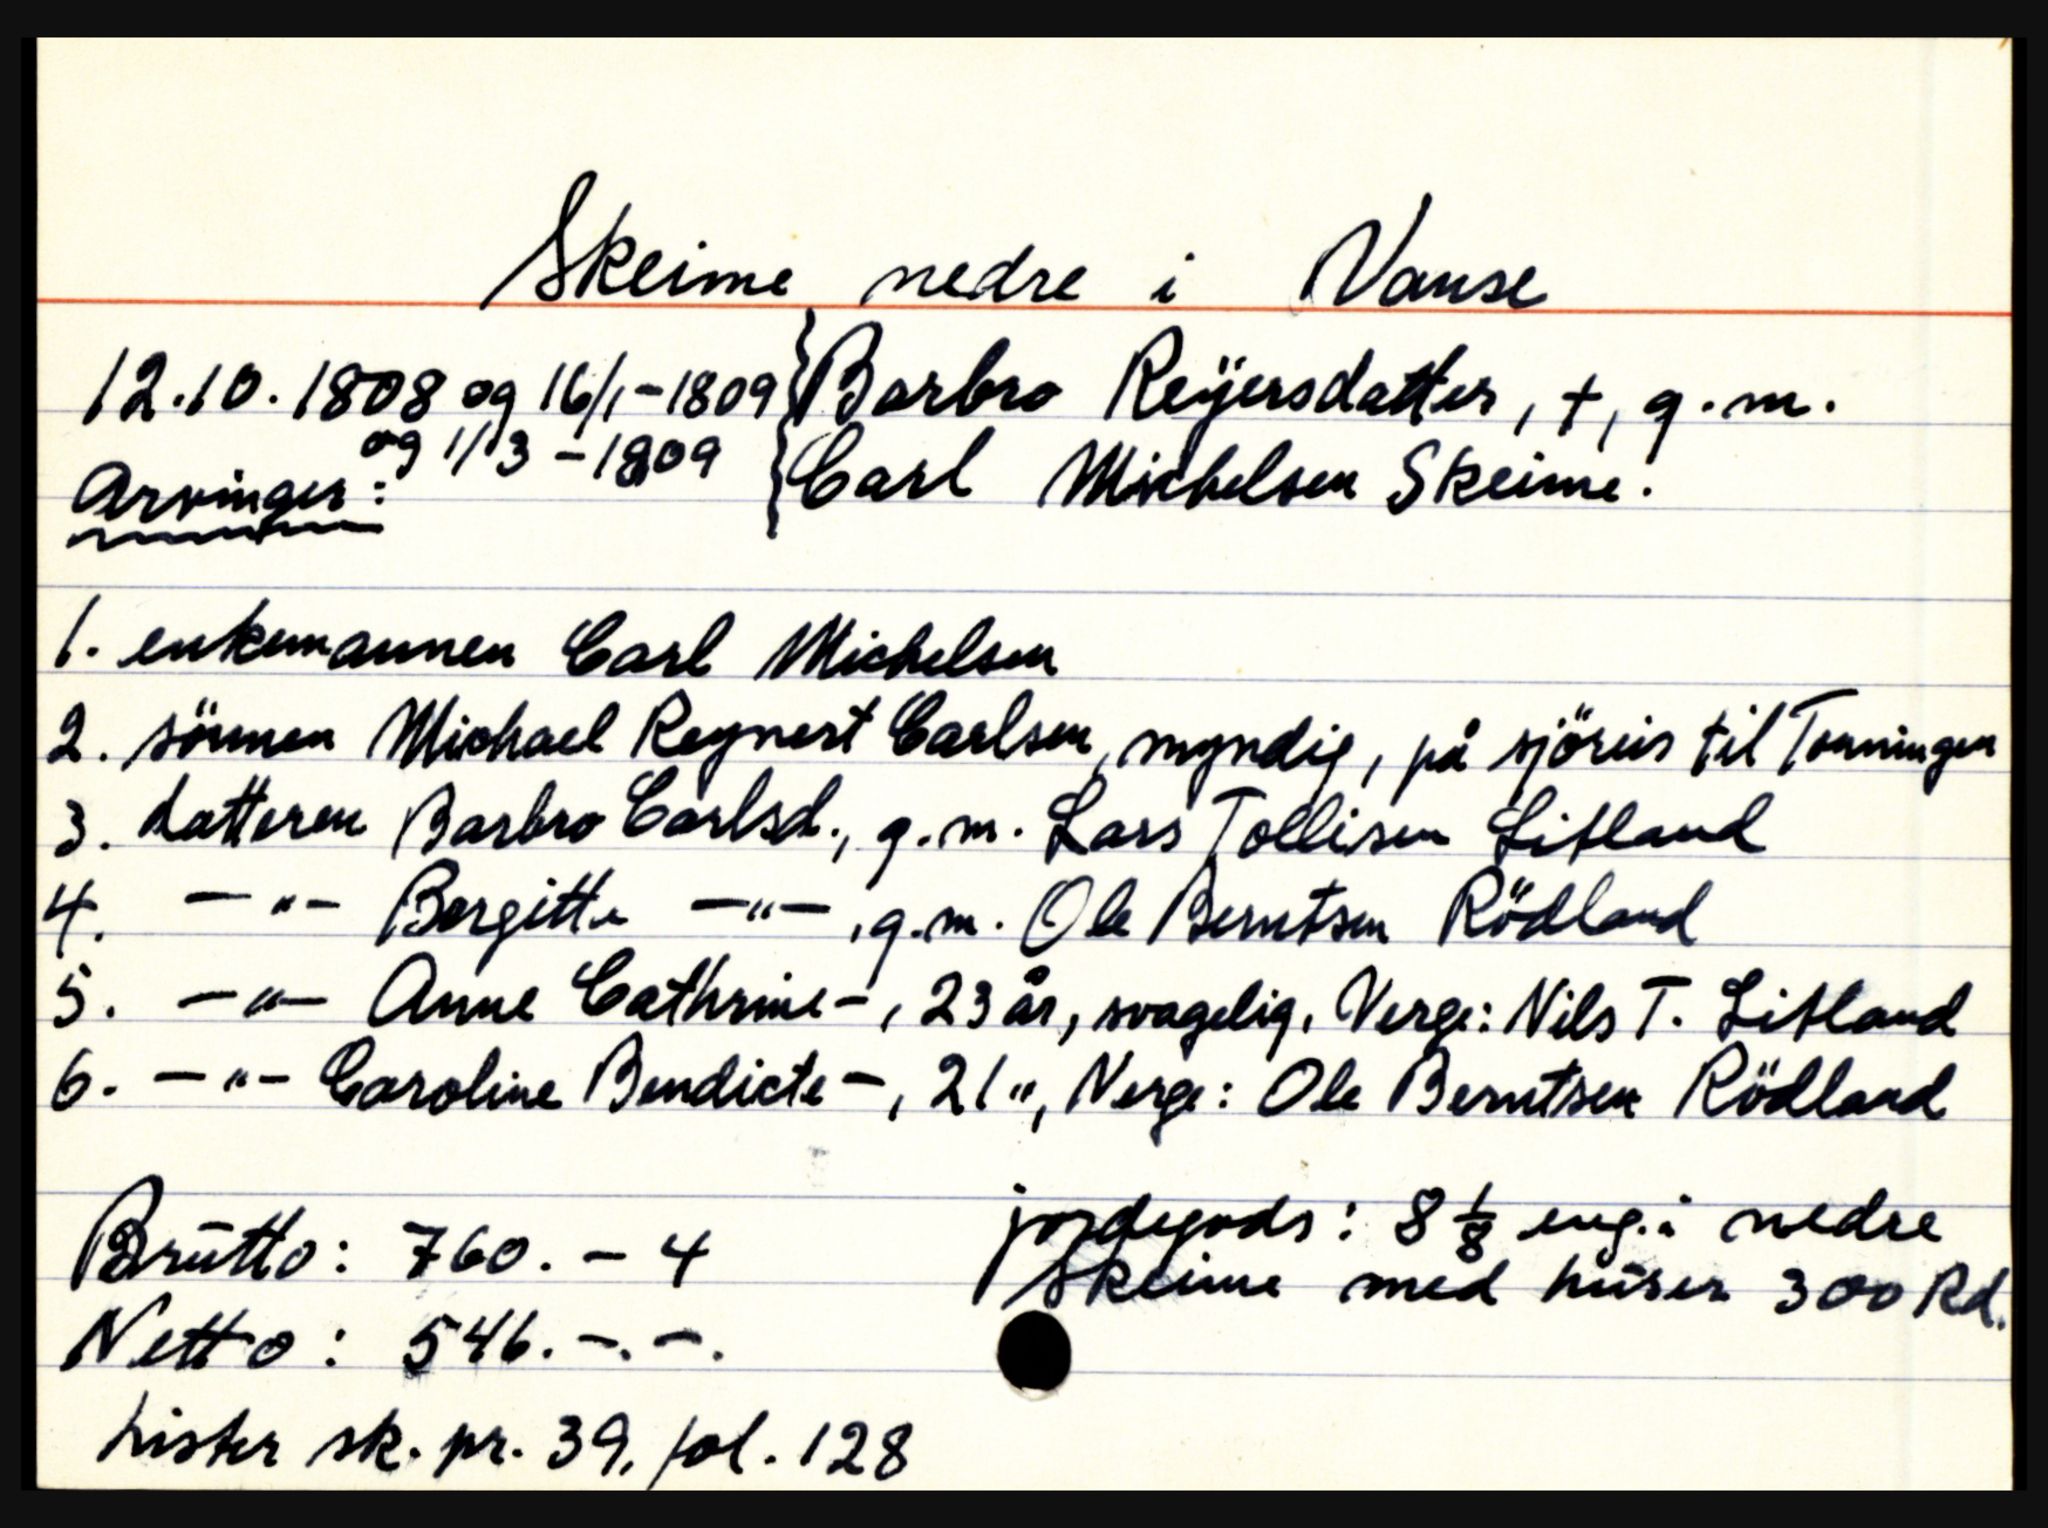 Skeime nedre i Vanse
12.10.1808 og 16/1-1809 } Barbro Reÿersdatter, †, g.m.
og 1/3-1809 } Carl Michelsen Skeime.
Arvinger:
1. enkemannen Carl Michelsen
2. sönnen Michael Reynert Carlsen, myndig, på sjöreis til Tonningen
3. datteren Barbro Carlsd., g.m. Lars Tollisen Litland
4. -"- Borgitte -"-, g.m. Ole Berntsen Rödland
5. -"- Anne Cathrine -, 23 år, svagelig. Verge: Nils T. Litland
6. -"- Caroline Bendicte -, 21 ", Verge: Ole Berntsen Rödland
Brutto: 760. - 4
jordegods: 8 1/8 eng. i nedre
Skeime med huser 300 Rd.
Netto: 546. -. -.
Lister sk. pr. 39, fol. 128